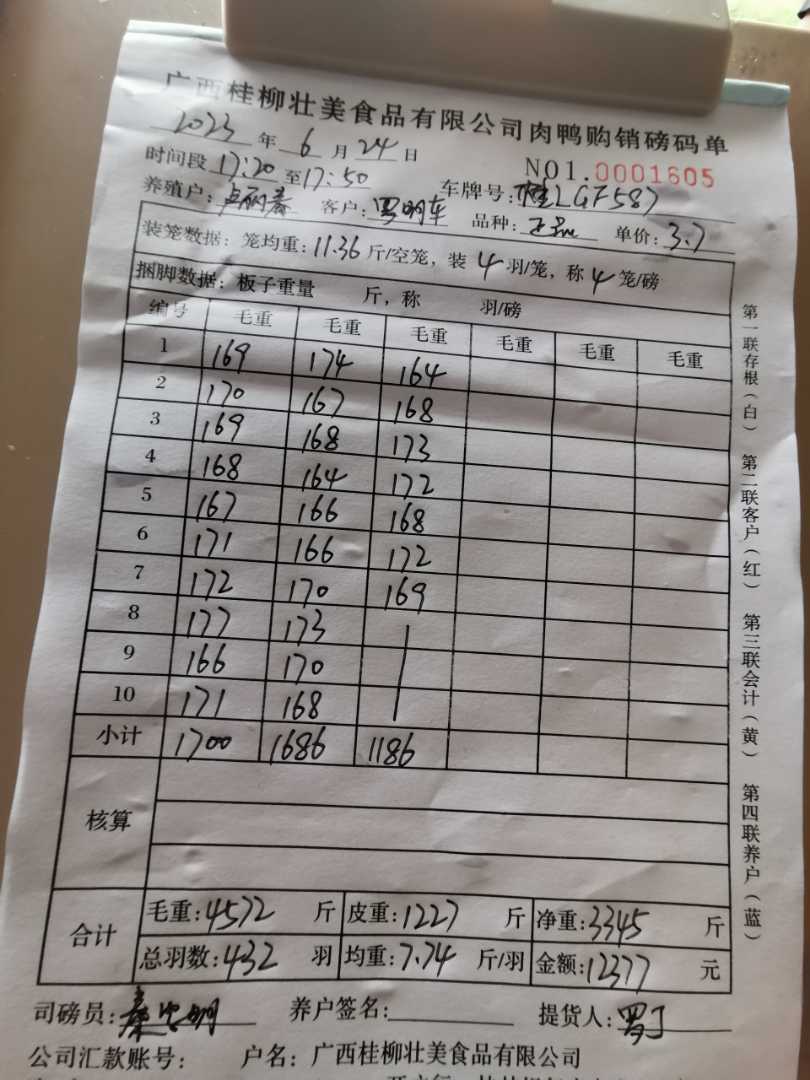 广西桂柳壮美食品有限公司肉鸭购销磅码单
2023年6月24日
NO1.0001605
时间段17:20至17:50 车牌号:桂LGF587
养殖户: 客户:罗明车 品种: 单价:3.7
装笼数据:笼均重:11.36斤/空笼,装4羽/笼,称4笼/磅
捆脚数据:板子重量 斤,称 羽/磅
编号 毛重 毛重 毛重 毛重 毛重 毛重
1 169 174 164
2 170 167 168
3 169 168 173
4 168 164 172
5 167 166 168
6 171 166 172
7 172 170 169
8 177 173
9 166 170
10 171 168
小计 1700 1686 1186
核算
合计
毛重:4572斤 皮重:1227斤 净重:3345斤
总羽数:432羽 均重:7.74斤/羽 金额:12377元
司磅员: 养户签名: 提货人:罗丁
公司汇款账号: 户名:广西桂柳壮美食品有限公司
第一联存根(白) 第二联客户(红) 第三联会计(黄) 第四联养户(蓝)